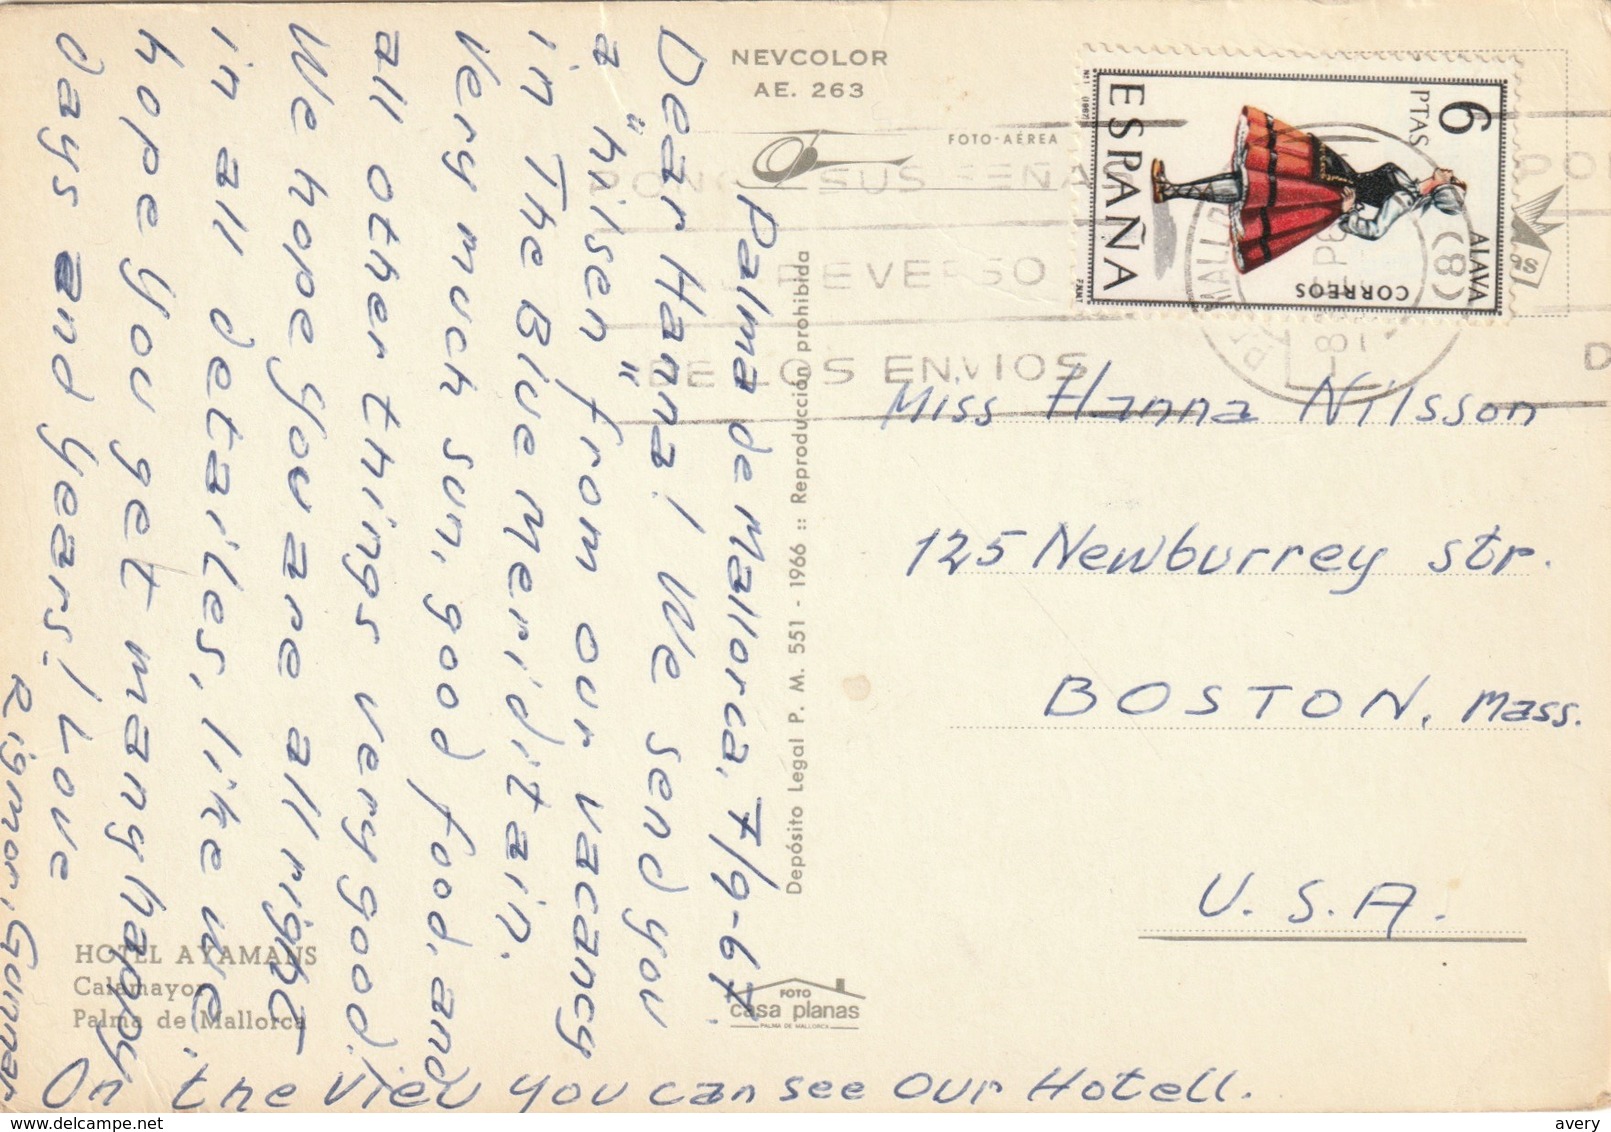 NEVCOLOR
AE. 263
FOTO-AÉREA
Palma de Mallorca, 7/9-67.
Dear Hanna! We send you
a "hilsen" from our vacancy
in The Blve Meriditain.
Very much sun, good food, and
all other things very good!
We hope You are all right
in all detailes, like we.
hope You get many happy
days and Years! Love
Rigmor, Gunnar
On the view you can see our Hotell.
HOTEL AYAMANS
Calamayor
Palma de Mallorca
Depósito Legal P. M. 551 - 1966 :: Reproducción prohibida
FOTO
casa planas
PALMA DE MALLORCA
6
PTAS
ALAVA
CORREOS
ESPAÑA
F.N.M.T
SUS SEÑA
REVERSO
DE LOS ENVIOS
(8)
Miss Hanna Nilsson
125 Newburrey str.
BOSTON, Mass.
U.S.A.
avery